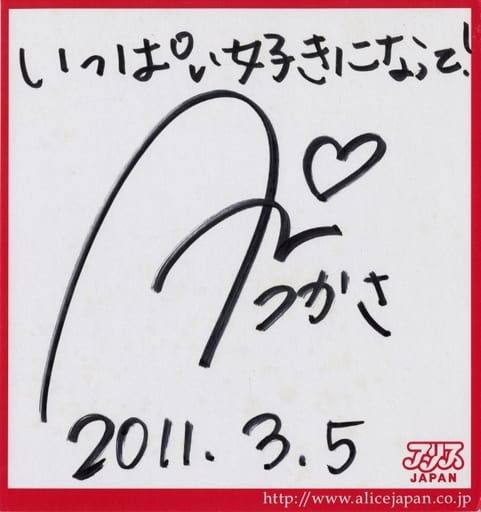 いっぱい好きになって!
つかさ
2011.3.5
アリス
JAPAN
http://www.alicejapan.co.jp